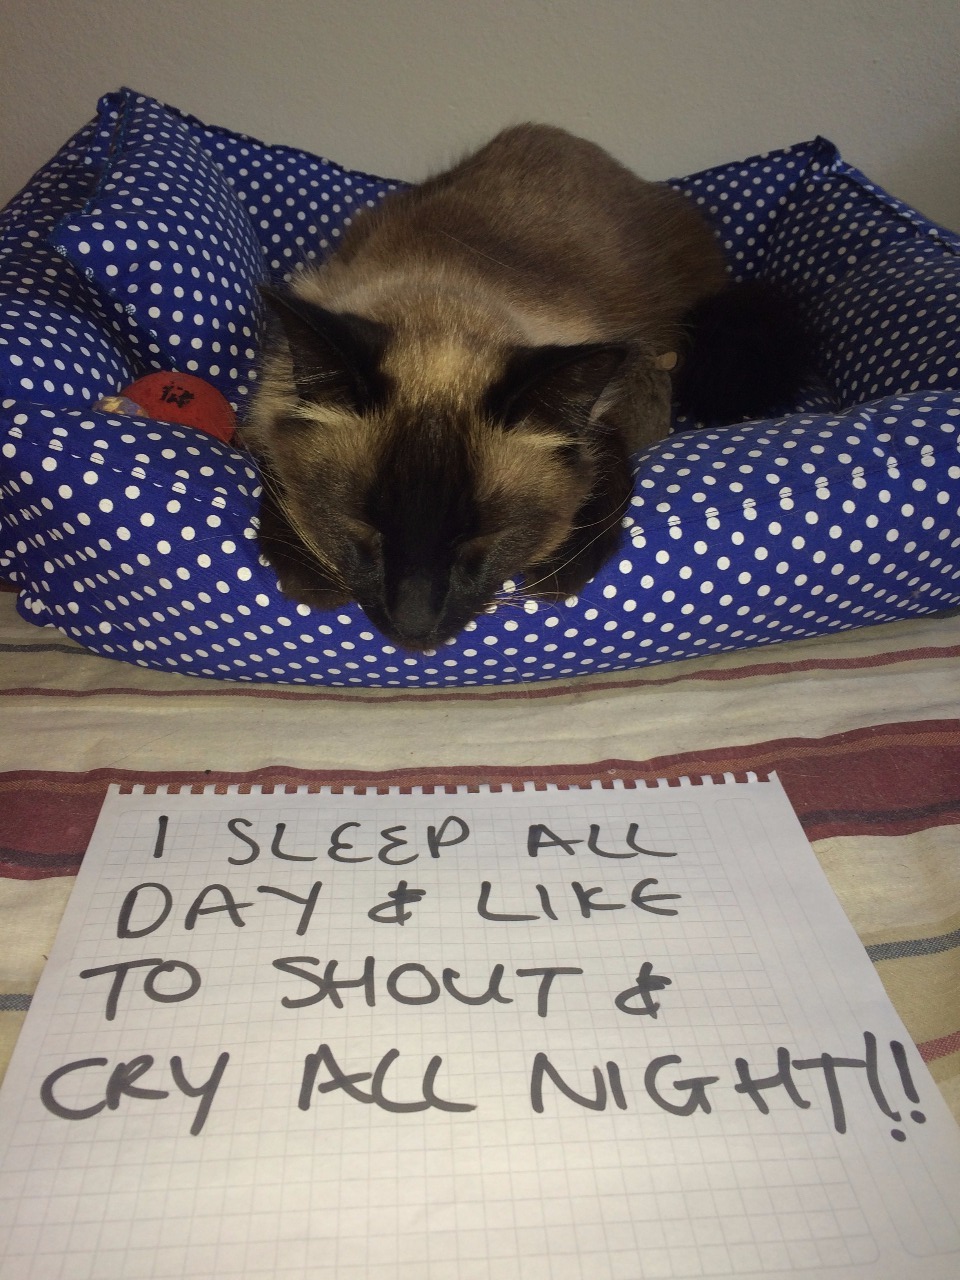 I SLEEP ALL
DAY & LIKE
TO SHOUT &
CRY ALL NIGHT!!